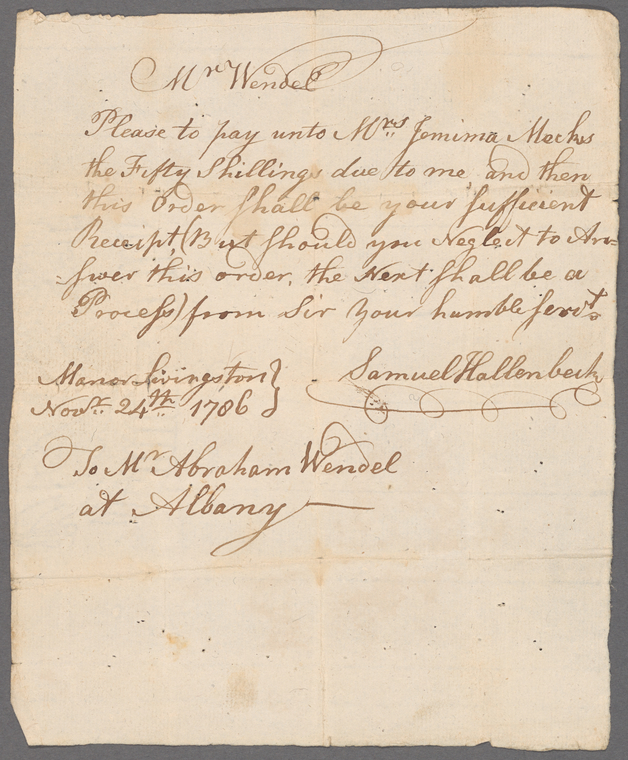 Mr Wendel
Please to pay unto Mrs Jemima Mecks
the Fifty Shillings due to me and then
this Order shall be your sufficient
Receipt (But should you Neglect to An=
=swer this order, the Next shall be a
Process) from Sir Your humble servt.
Manor Livingston }
Novr. 24th. 1786 }
Samuel Hallenbeck
To Mr Abraham Wendel
at Albany